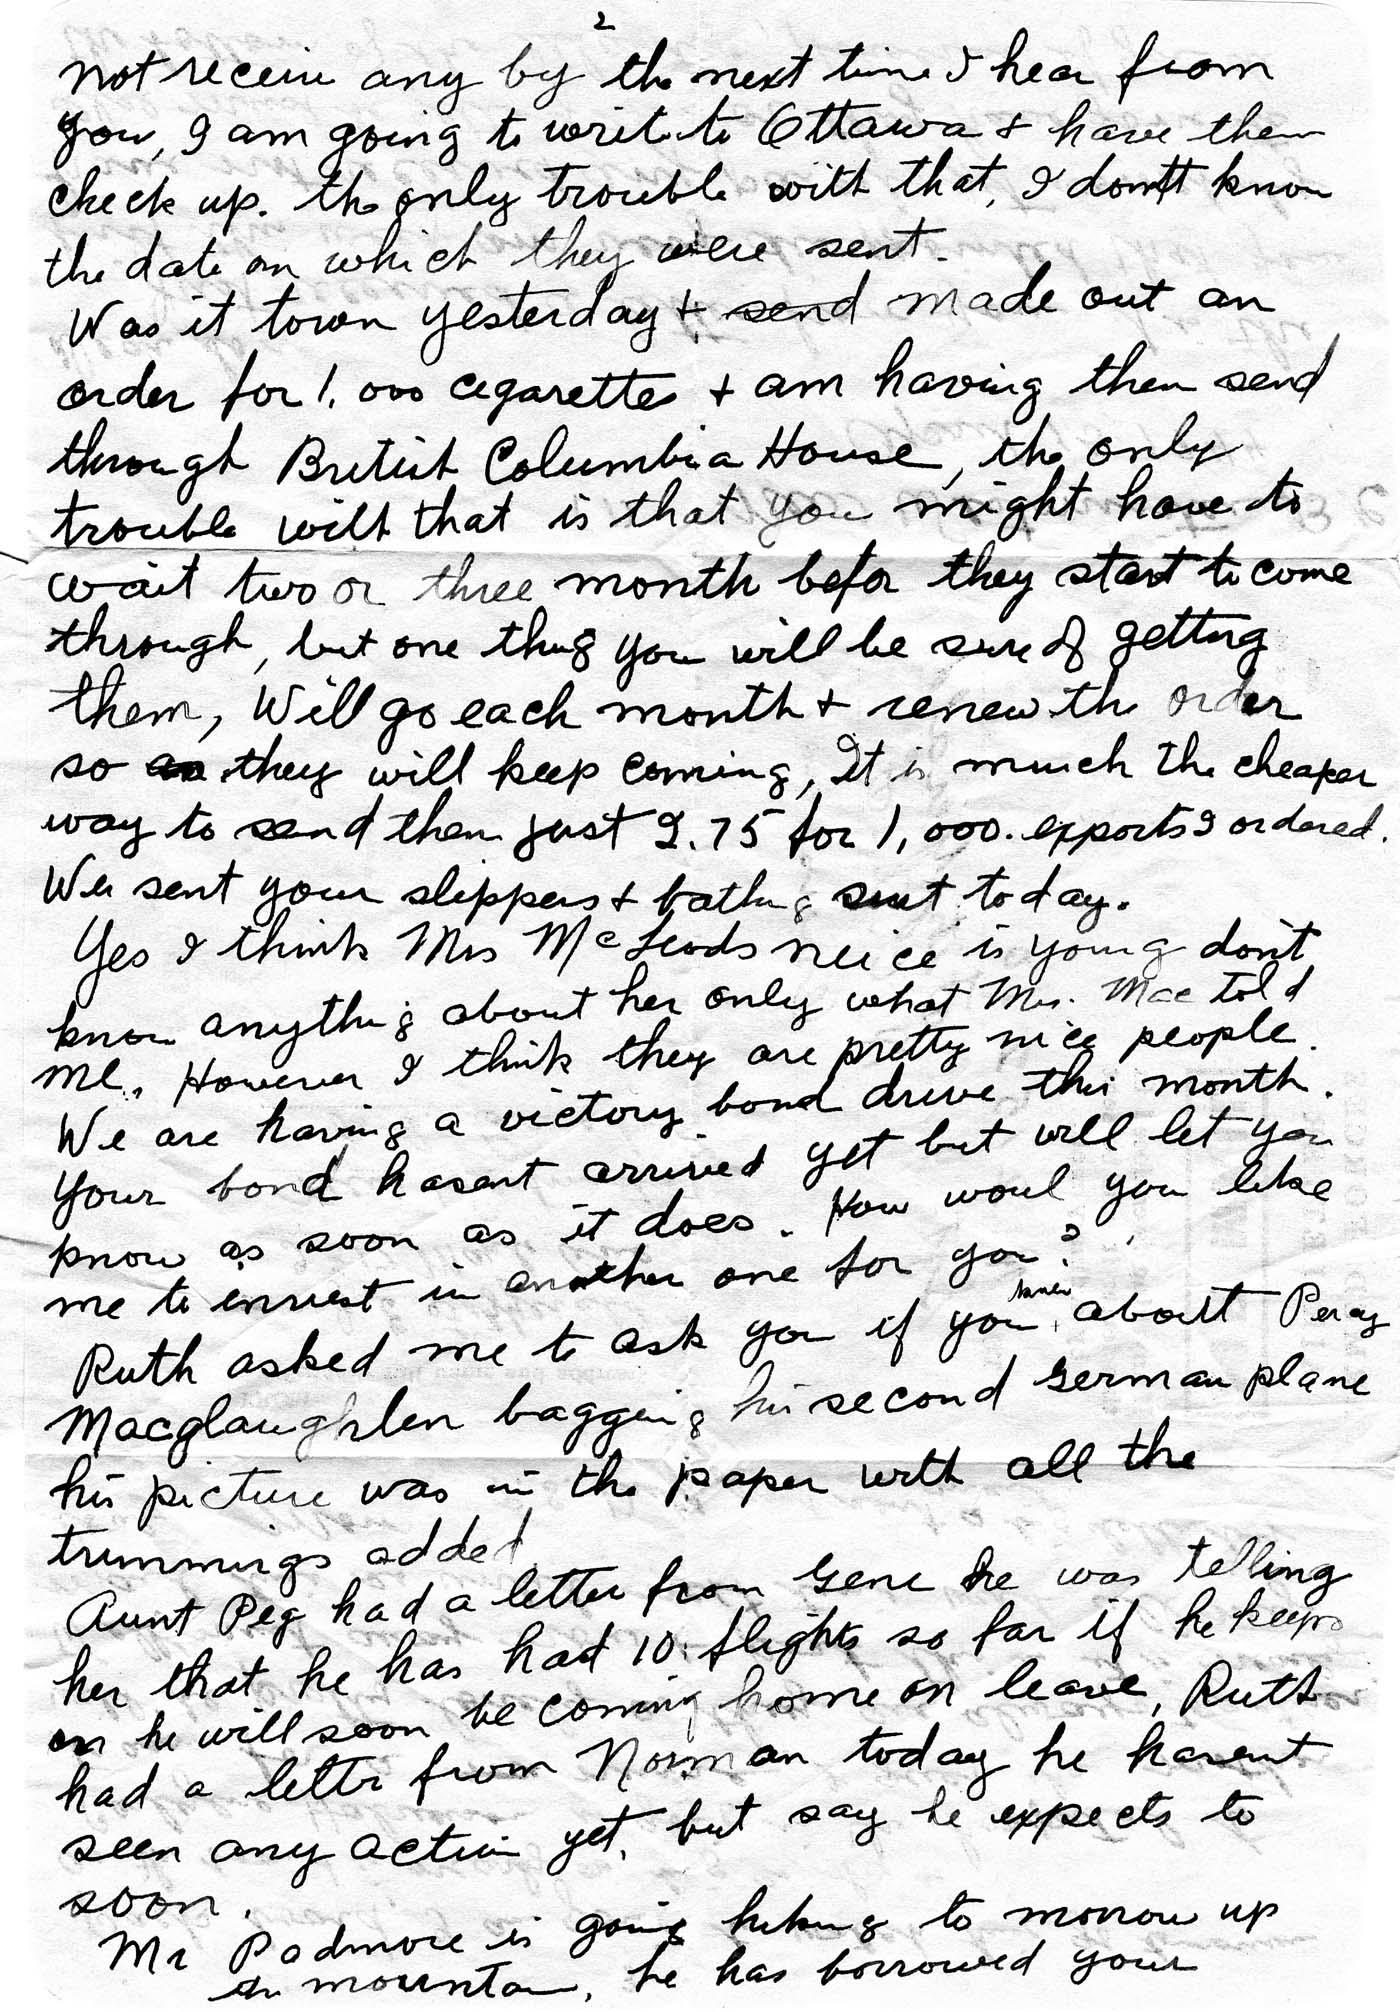 2
not receive any by the next time I hear from
you, I am going to write to Ottawa + have them
check up. the only trouble with that, I don't know
the date on which they were sent.
Was it town yesterday + send made out an
order for 1,000 cigarettes + am having them send
through British Columbia House, the only
trouble with that is that you might have to
wait two or three month befor they start to come
through, but one thing you will be sure of getting
them, Will go each month + renew the order
so as they will keep coming, It is much the cheaper
way to send them just 2.75 for 1,000. exports I ordered.
We sent your slippers + bathing suit today.
Yes I think Mrs McLeods neice is young don't
know anything about her only what Mrs. Mac told
me. However I think they are pretty nice people.
We are having a victory bond drive this month.
Your bond hasent arrived yet but will let you
know as soon as it does. How woul you like
me to invest in another one for you?
Ruth asked me to ask you if you knew about Percy
Macglaughlen bagging his second German plane
his picture was in the paper with all the
trimmings added
Aunt Peg had a letter from Gene he was telling
her that he has had 10 flights so far if he keeps
on he will soon be coming home on leave, Ruth
had a lettr from Norman today he havent
seen any action yet, but say he expects to
soon.
Mr Padmore is going hiking to morrow up
the mountain, he has borrowed your